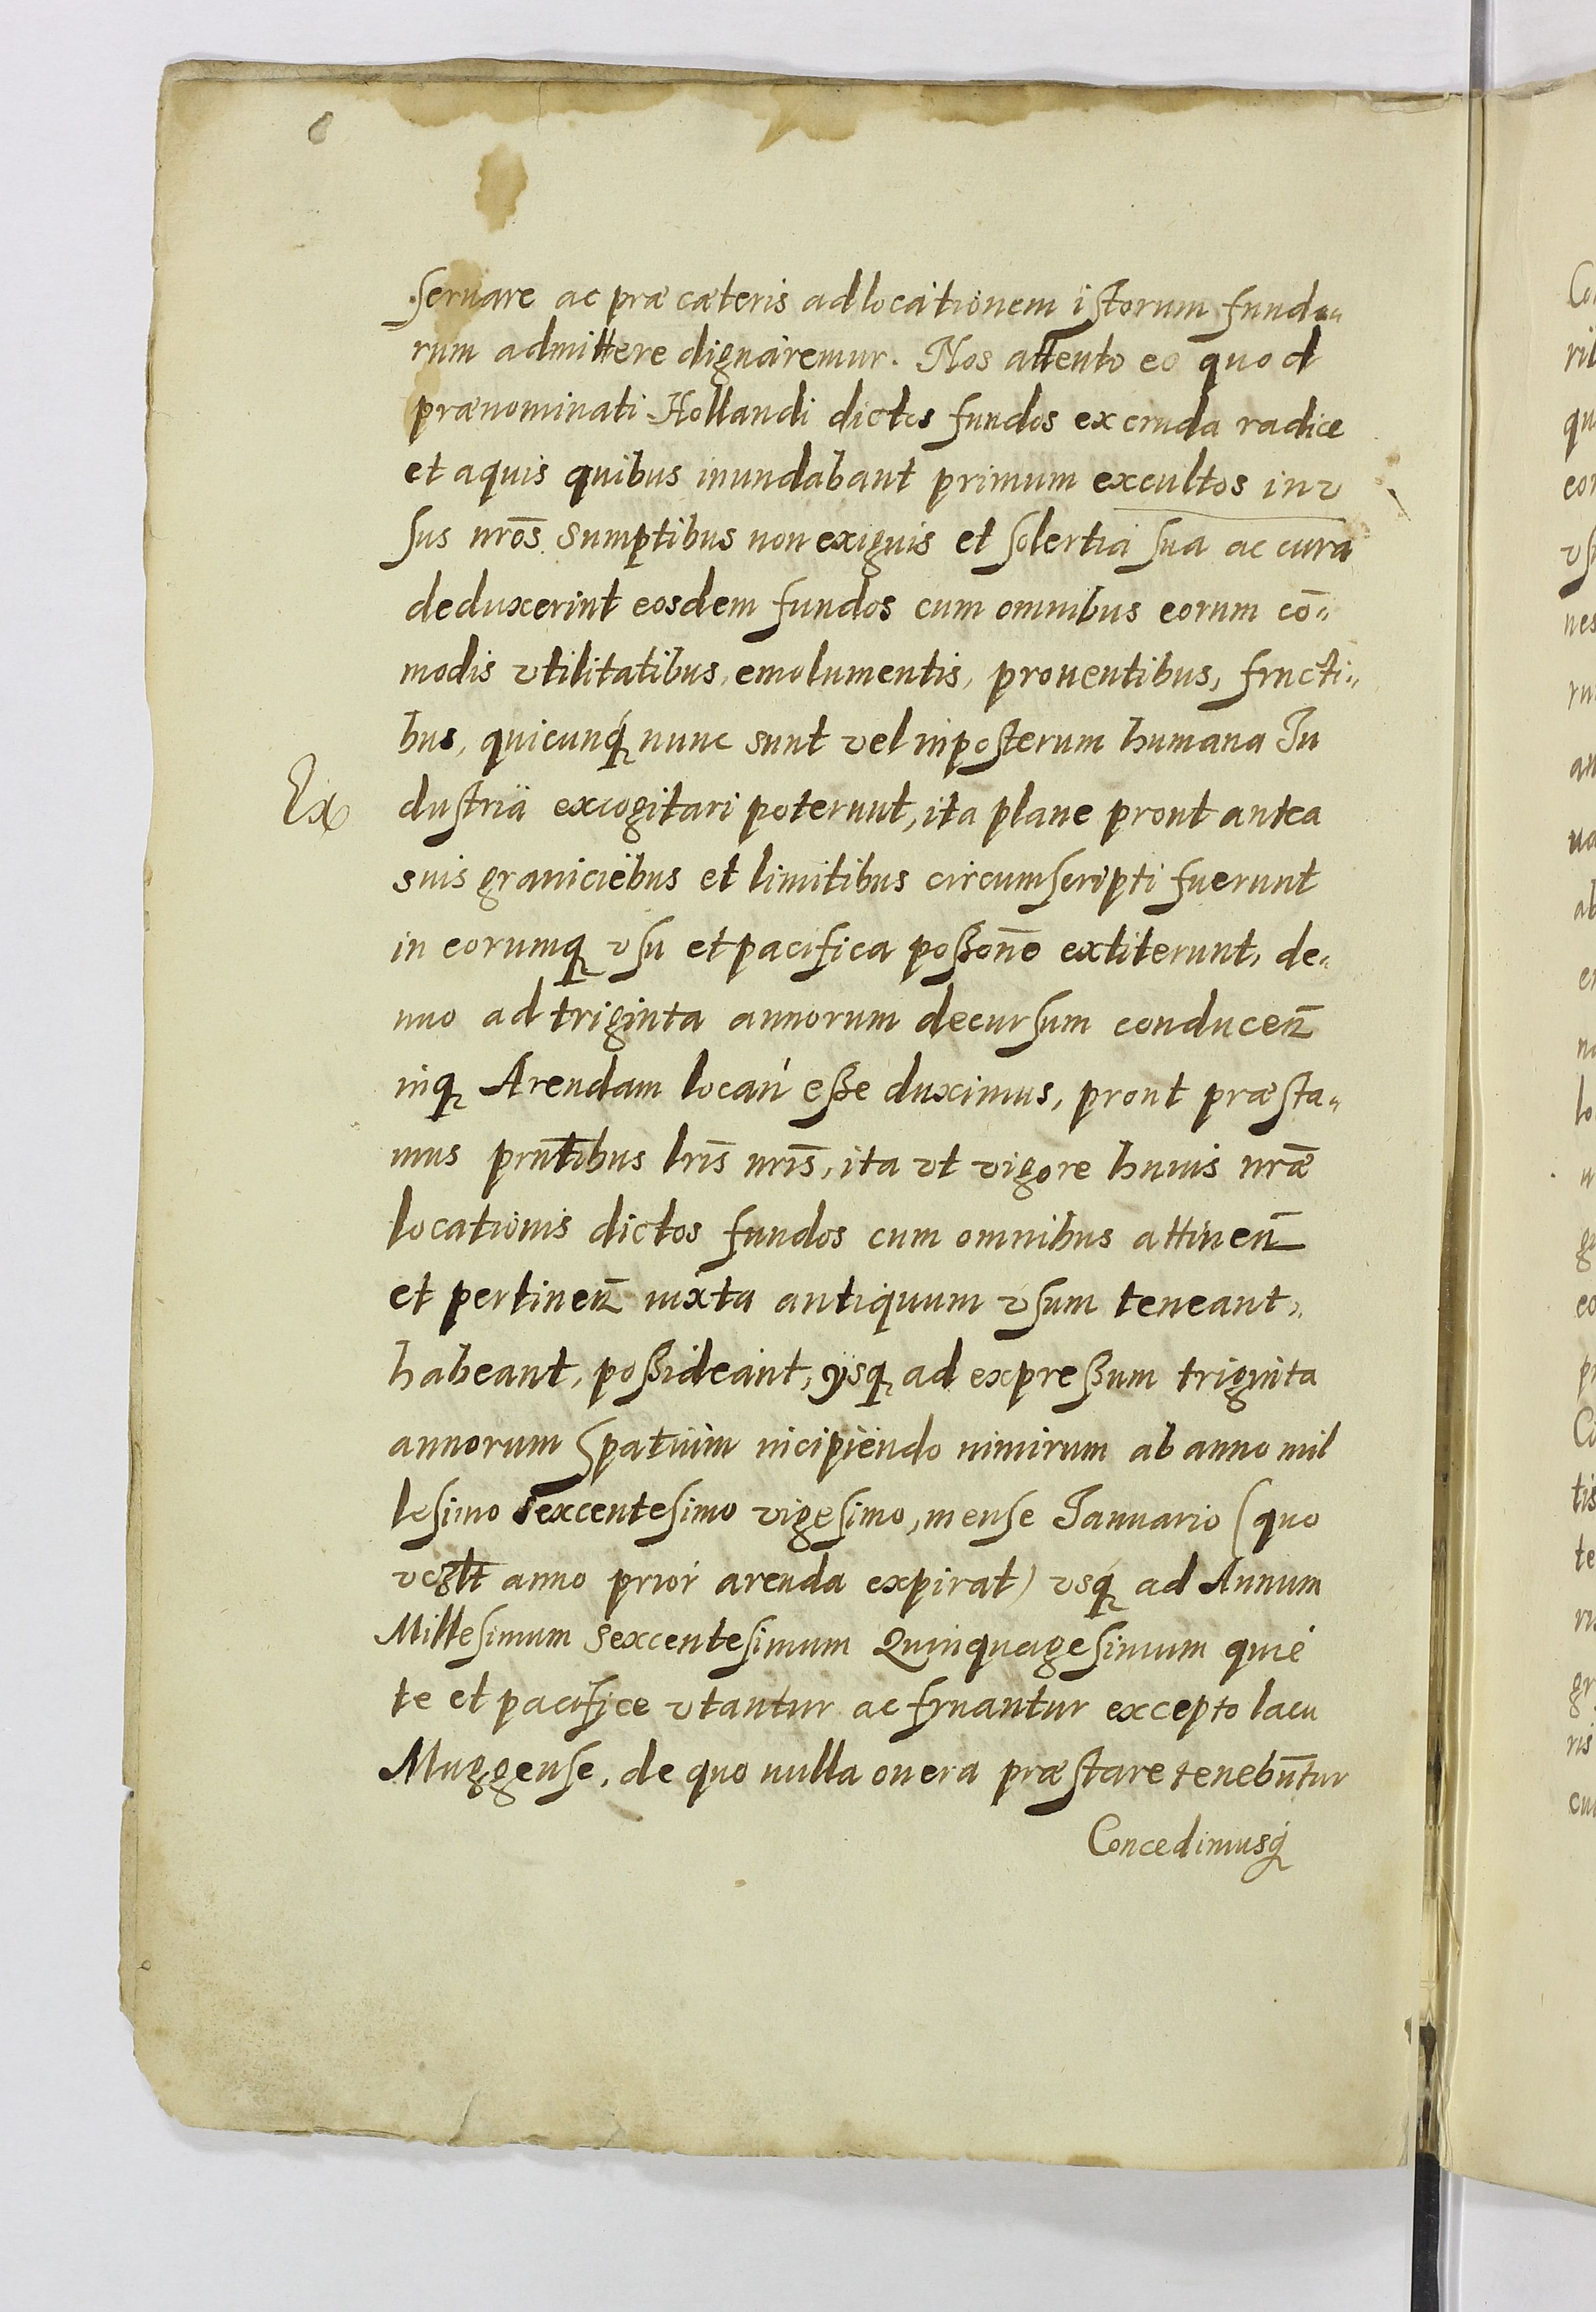 servare ac præ cæteris ad locationem istorum fundo„
rum admittere dignaremur. Nos attento eo quod
prænominati Hollandi dictos fundos ex cruda radice
et aquis quibus inundabant primum excultos in v
sus nrōs sumptibus non exiguis et solertia sua ac cura
deduxerint eosdem fundos cum omnibus eorum cō„
modis vtilitatibus, emolumentis, prouentibus, fructi„
bus, quicunq́ nunc sunt vel inposterum humana In
Ex
dustria excogitari poterunt, ita plane prout antea
suis graniciebus et limitibus circumscripti fuerunt
in eorumq vsu et pacifica poßone̅ extiterunt, de„
nuo ad triginta annorum decursum conducen̅
inq Arendam locan eße duximus, prout præsta„
mus prn̅tibus lrīs nrīs, ita vt vigore huius nrǣ
locationis dictos fundos cum omnibus attinen̅
et pertinen̅ iuxta antiquum vsum teneant,
habeant, poßideant, ijsq ad expreßum triginta
annorum spatium incipiendo nimirum ab anno mil
lesimo sexcentesimo vigesimo, mense Ianuario (quo
anno prior arenda expirat) vsq́ ad Annum
Millesimum sexcentesimum Quinquagesimum quie
te et pacifice vtantur ac fruantur excepto lacu
Muggense, de quo nulla onera præstare tenebūtur
Concedimusq́